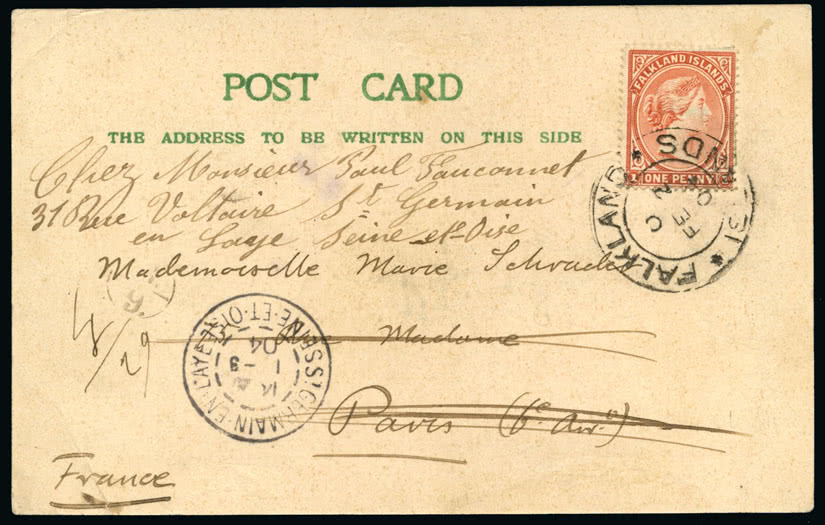 POST CARD
THE ADDRESS TO BE WRITTEN ON THIS SIDE
FALKLAND ISLANDS
1 ONE PENNY
FALKLAND
C
FE 2
04
Chez Monsieur Paul Fauconnet
31 Rue Voltaire St Germain
en Laye Seine et-Oise
Mademoiselle Marie Schrader
6
Rue Madame
Paris (6e Arrt)
France
ST GERMAIN-EN-LAYE
04